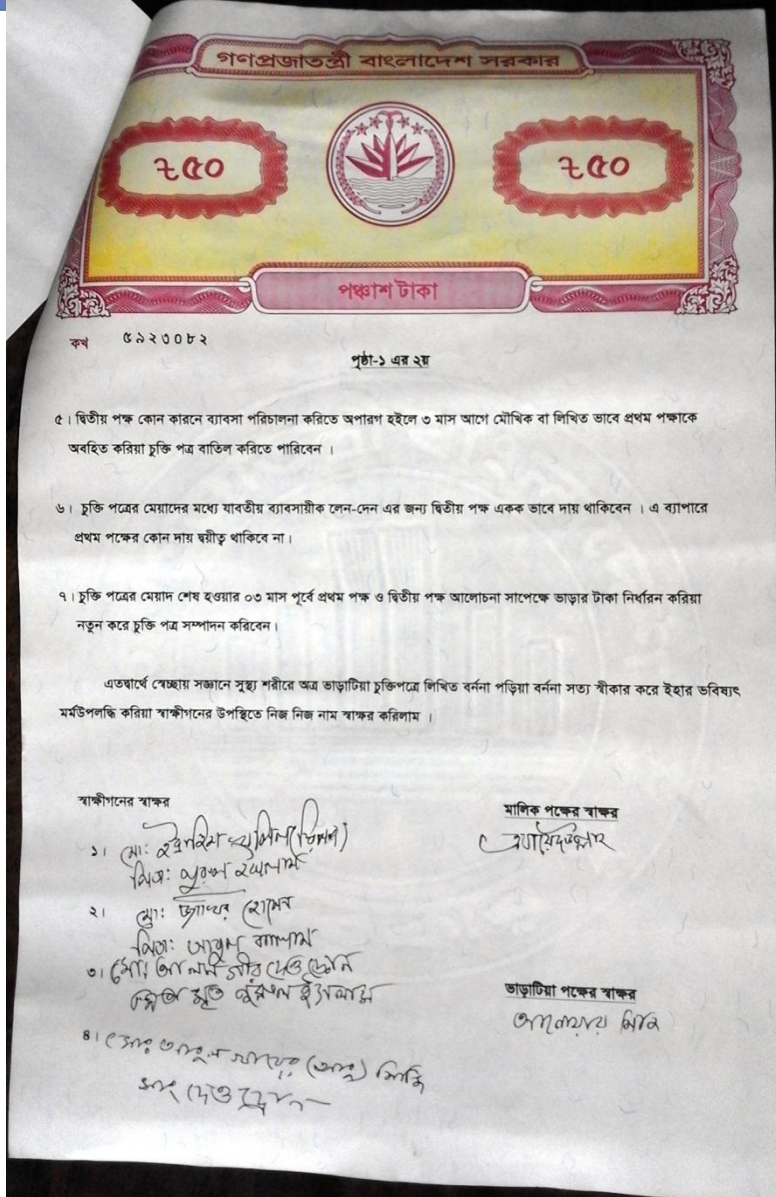 গণপ্রজাতন্ত্রী বাংলাদেশ সরকার
৳৫০ ৳৫০
পঞ্চাশ টাকা
কখ ৫৯২৩০৮২
পৃষ্ঠা-১ এর ২য়
৫। দ্বিতীয় পক্ষ কোন কারনে ব্যাবসা পরিচালনা করিতে অপারগ হইলে ৩ মাস আগে মৌখিক বা লিখিত ভাবে প্রথম পক্ষাকে
অবহিত করিয়া চুক্তি পত্র বাতিল করিতে পারিবেন ।
৬। চুক্তি পত্রের মেয়াদের মধ্যে যাবতীয় ব্যাবসায়ীক লেন-দেন এর জন্য দ্বিতীয় পক্ষ একক ভাবে দায় থাকিবেন । এ ব্যাপারে
প্রথম পক্ষের কোন দায় দ্বয়ীত্ব থাকিবে না।
৭। চুক্তি পত্রের মেয়াদ শেষ হওয়ার ০৩ মাস পূর্বে প্রথম পক্ষ ও দ্বিতীয় পক্ষ আলোচনা সাপেক্ষে ভাড়ার টাকা নির্ধারন করিয়া
নতুন করে চুক্তি পত্র সম্পাদন করিবেন।
এতদ্বার্থে স্বেচ্ছায় সজ্ঞানে সুস্থ্য শরীরে অত্র ভাড়াটিয়া চুক্তিপত্রে লিখিত বর্ননা পড়িয়া বর্ননা সত্য স্বীকার করে ইহার ভবিষ্যৎ
মর্মউপলদ্ধি করিয়া স্বাক্ষীগনের উপস্থিতে নিজ নিজ নাম স্বাক্ষর করিলাম ।
স্বাক্ষীগনের স্বাক্ষর
মালিক পক্ষের স্বাক্ষর
১। মো:
পিতা: নুরুল ইসলাম
২। মো: হোসেন
পিতা: আবুল কালাম
৩। মোঃ আলমগীর
পিতা মৃত নুরুল ইসলাম
ভাড়াটিয়া পক্ষের স্বাক্ষর
আনোয়ার
৪।